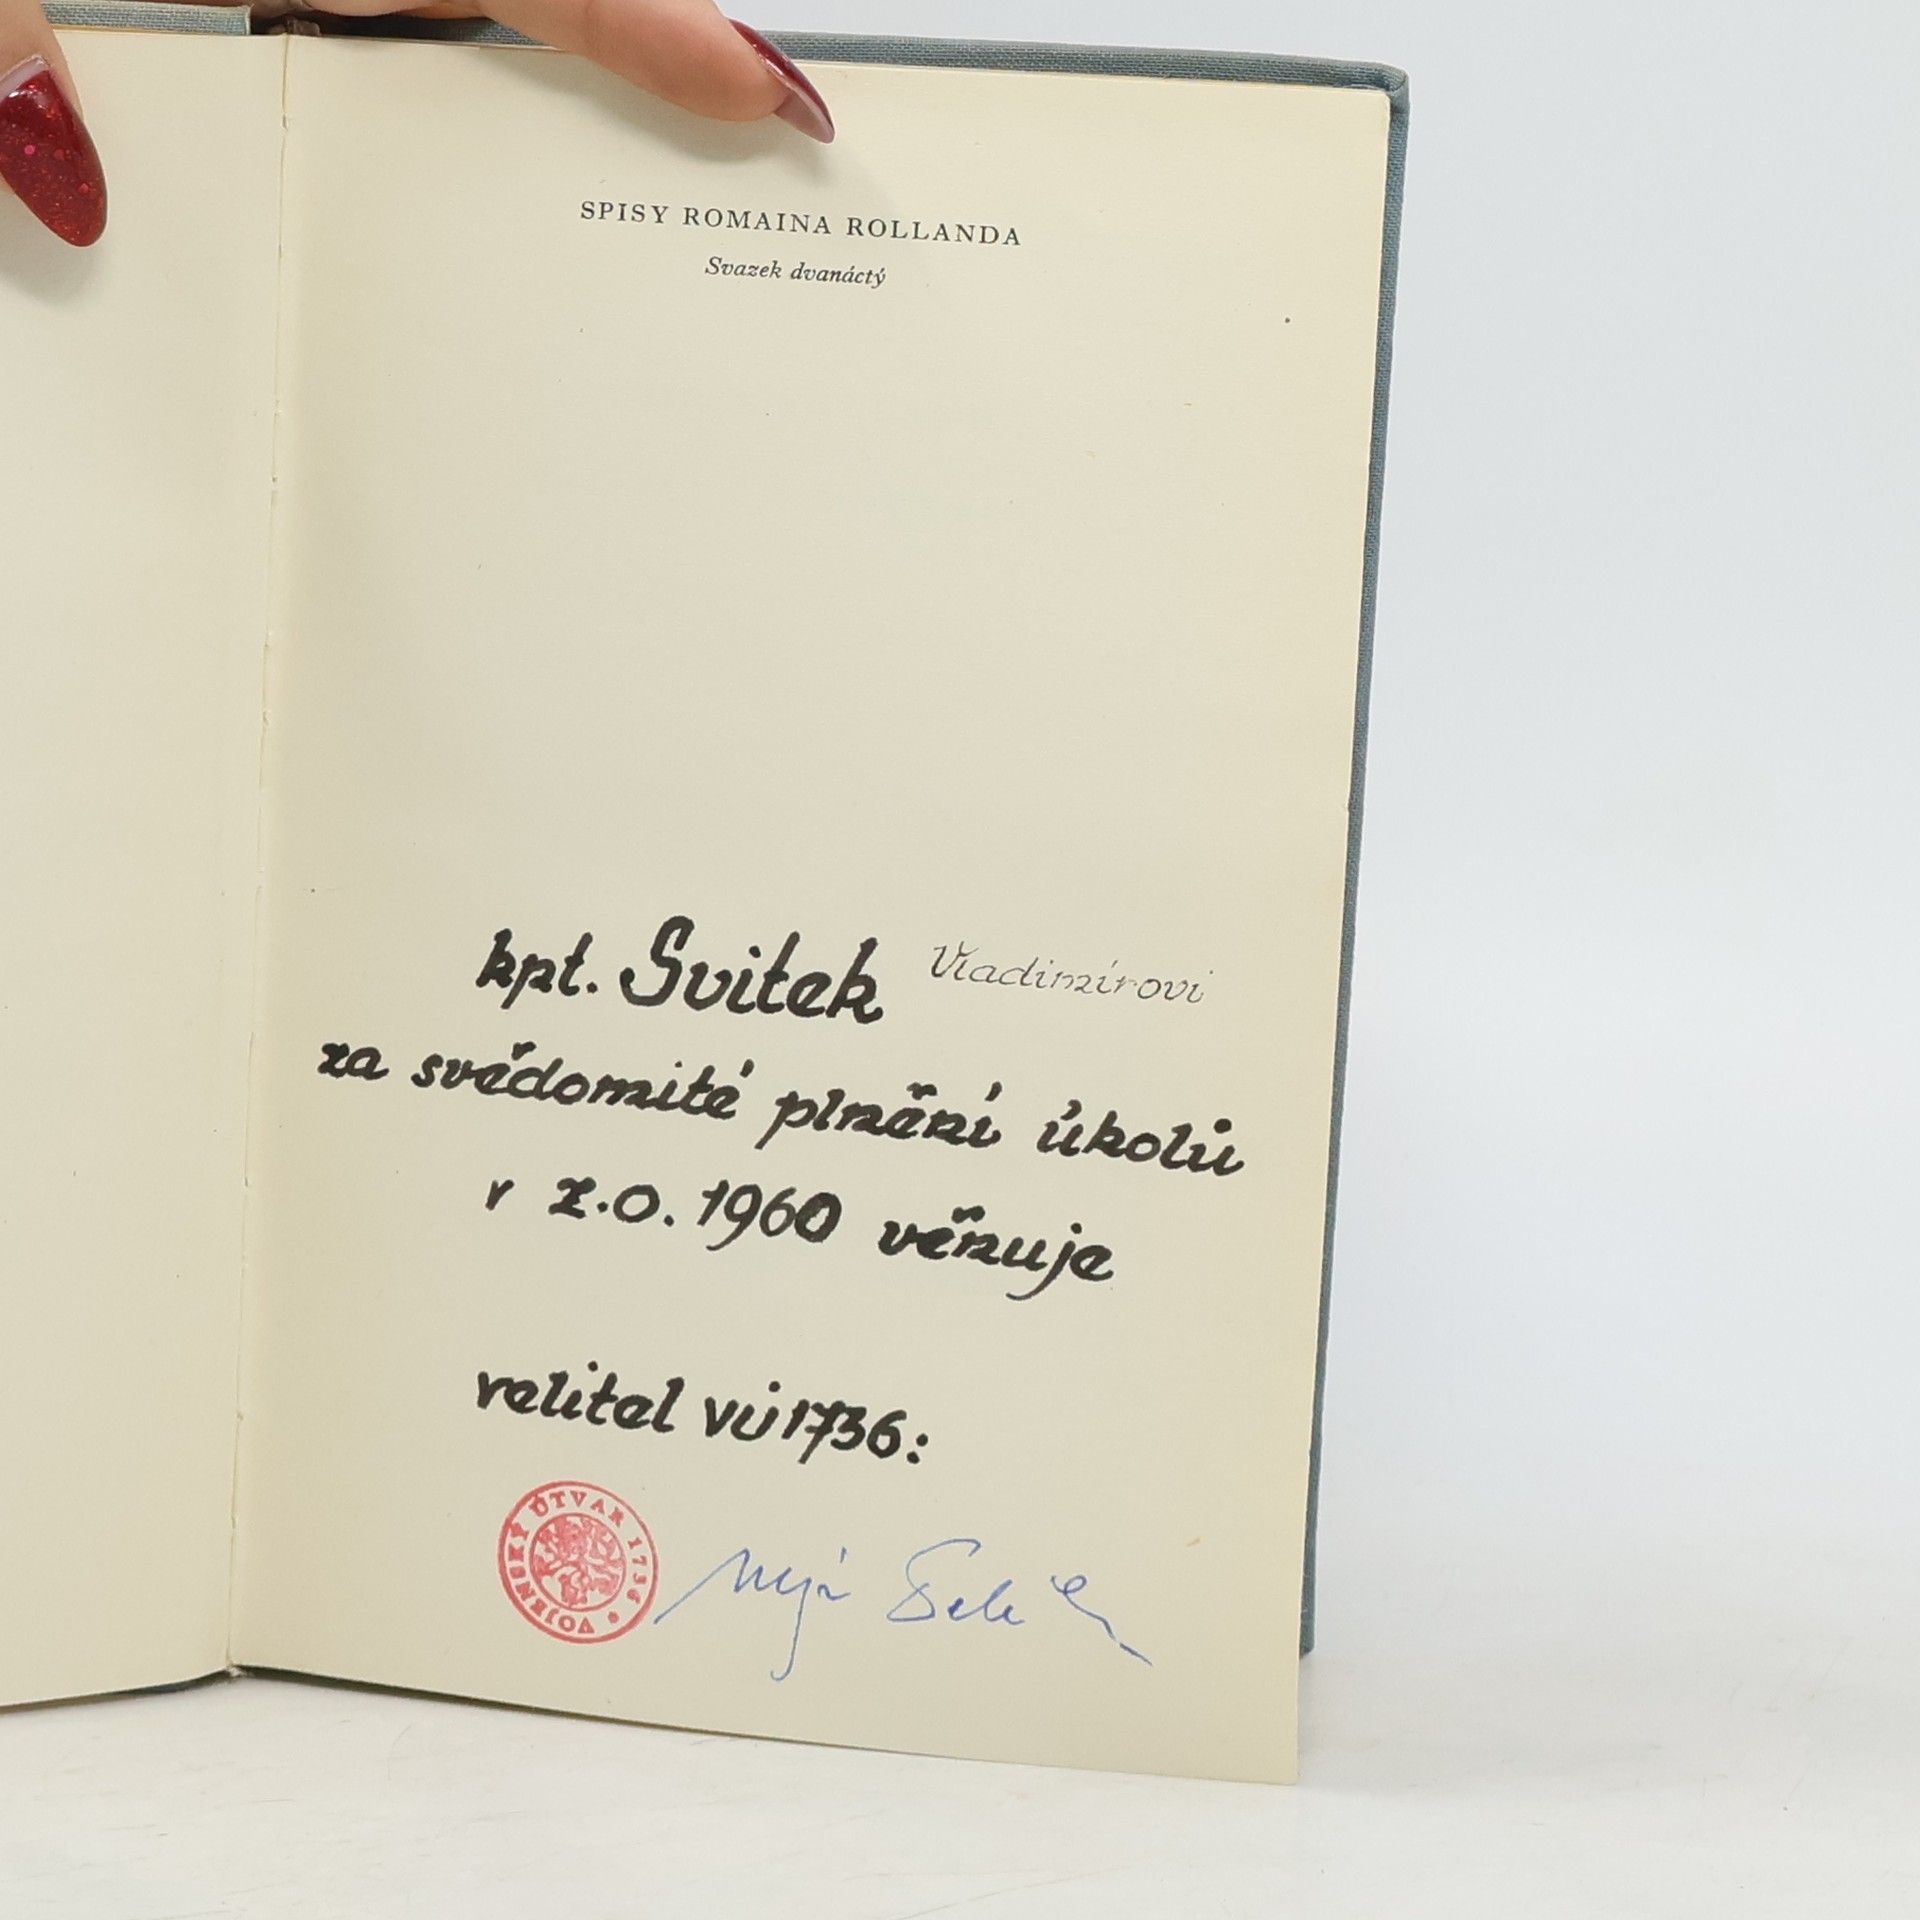 SPISY ROMAINA ROLLANDA
Svazek dvanáctý
kpt. Svitek Vladimírovi
za svědomité plnění úkolů
v z.o. 1960 věnuje
velitel vú 1736:
VOJENSKÝ ÚTVAR 1736